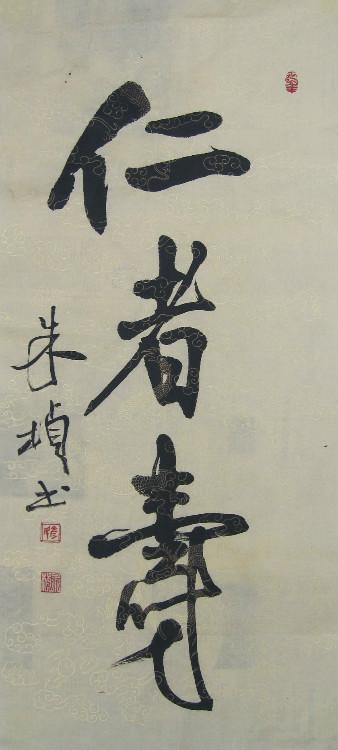 仁者壽
朱楨书